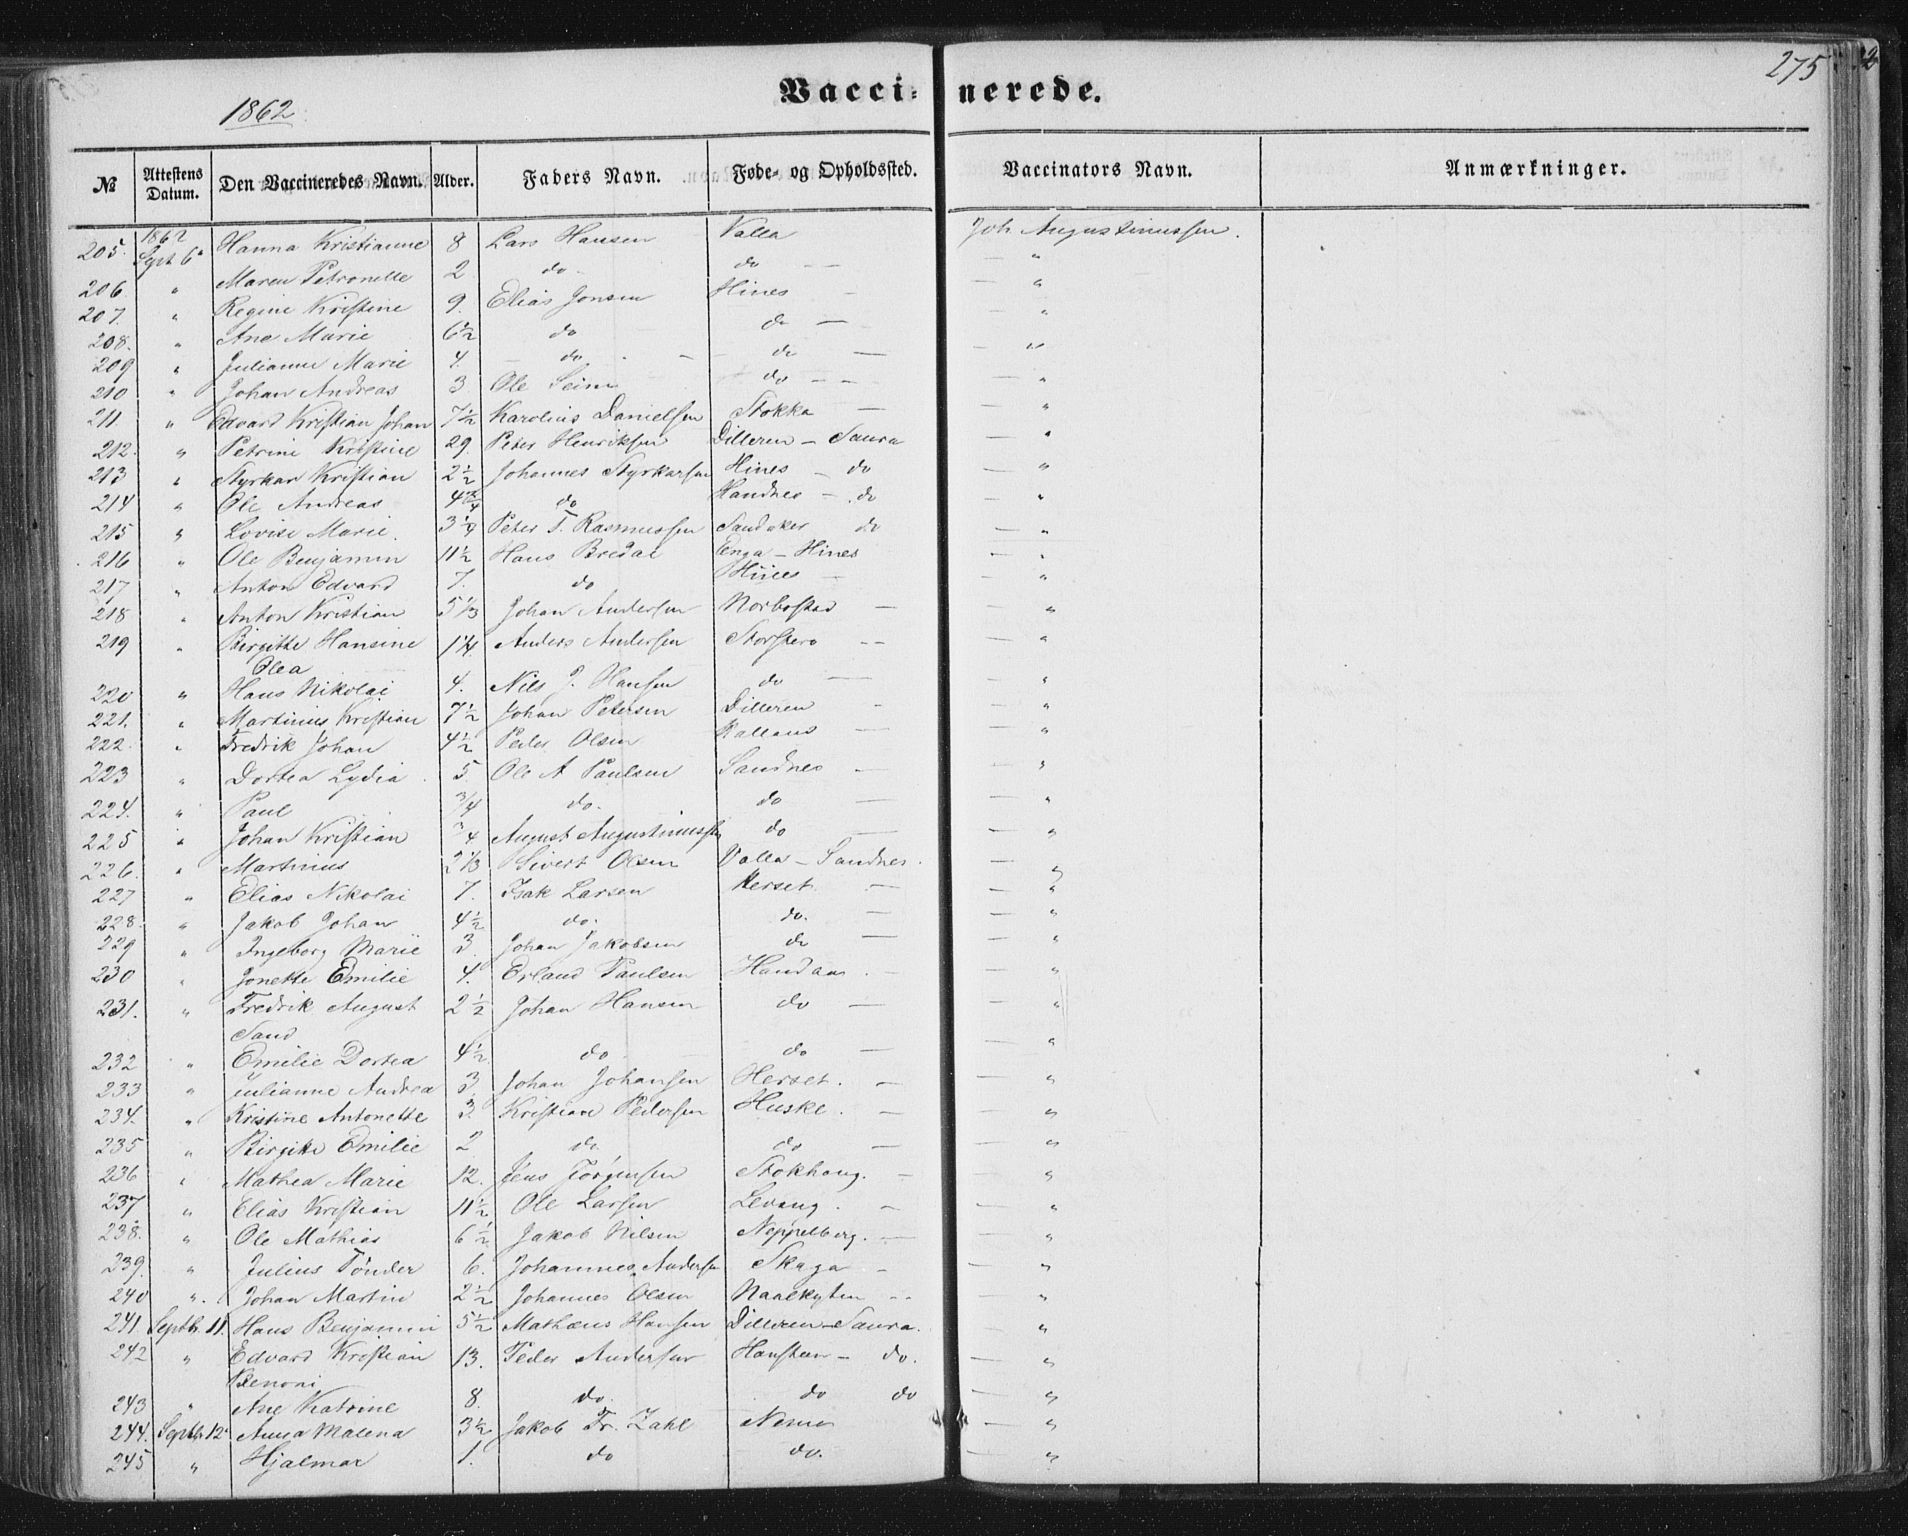 1862
Vacci- nerede.
275
№ Attestens Datum. Den Vaccineredes Navn. Alder. Faders Navn. Føde- og Opholdssted. Vaccinators Navn. Anmærkninger.
205. 1862 Sept 6 Hanna Kristianne 8 Lars Hansen Valla Joh Augustinussen.
206. " Maren Petronelle 2 do. do — — "
207. " Regine Kristine 9. Elias Jonsen Hines — — "
208. " Ane Marie 6½ do do — — "
209 " Julianne Marie 4. do do — — "
210 " Johan Andreas 3 Ole Seim do — — "
211. " Edvard Kristian Johan 7½ Karolius Danielsen Stokka — — "
212. " Petrine Kristine 29. Peter Henriksen Dilleren — Saura "
213 " Styrkar Kristian 2½ Johannes Styrkarsen Hines — do — "
214 " Ole Andreas 4¾ do Handnes — do — "
215 " Lovise Marie. 3¼ Peter T. Rasmussen Sandaker do — "
216 " Ole Benjamin 11½ Hans Bredal Enga — Hines — "
217 " Anton Edvard 7. do Hines — — "
218 " Anton Kristian 5⅓ Johan Andersen Norbostad — — "
219 " Birgitte Hansine 1¼. Anders Andersen Storstero — — "
Olea
220 " Hans Nikolai 4. Nils J. Hansen do — — "
221. " Martinus Kristian 7½ Johan Petersen Dilleren — — "
222. " Fredrik Johan 4½ Peder Olsen — — "
223 " Dortea Lydia. 5. Ole A Paulsen Sandnes — — "
224. " Paul ¾ do. do — — "
225 " Johan Kristian ¾ August Augustinussen do — — "
226. " Martinus 2⅓ Sivert Olsen Valla — Sandnes. — "
227 " Elias Nikolai 7. Isak Larsen Herset. — — "
228. " Jakob Johan 4½ do. do. — — "
229 " Ingeborg Marie 3. Johan Jakobsen do — — "
230 " Jonette Emilie 4. Erland Paulsen — — "
231. " Fredrik August 2½ Johan Hansen do — — "
Sand
232 " Emilie Dortea 4½. do do — — "
233 " Julianne Andrea 3 Johan Johansen Herset. — — "
234. " Kristine Antonette 3. Kristian Pedersen Huske. — — "
235 " Birgitte Emilie 2 do do — — "
236 " Mathea Marie 12. Jens Jørgensen Stokhaug. — — "
237 " Elias Kristian 11½ Ole Larsen Levang. — — "
238. " Ole Mathias 6½ Jakob Nilsen Neppelberg. — — "
239. " Julius Tønder 6. Johannes Andersen Skaga — — "
240 " Johan Martin 2½ Johannes Olsen — — "
241. Septb. 11. Hans Benjamin 5½ Mathæus Hansen Dilleren — Saura. — "
242 " Edvard Kristian 13. Peder Andersen — do. — "
Benoni
243 " Ane Katrine 8. do. do do — "
244. Septb. 12 Anna Malena 3½ Jakob Fr. Zahl Nesna — "
245 " Hjalmar 1. do do. — "